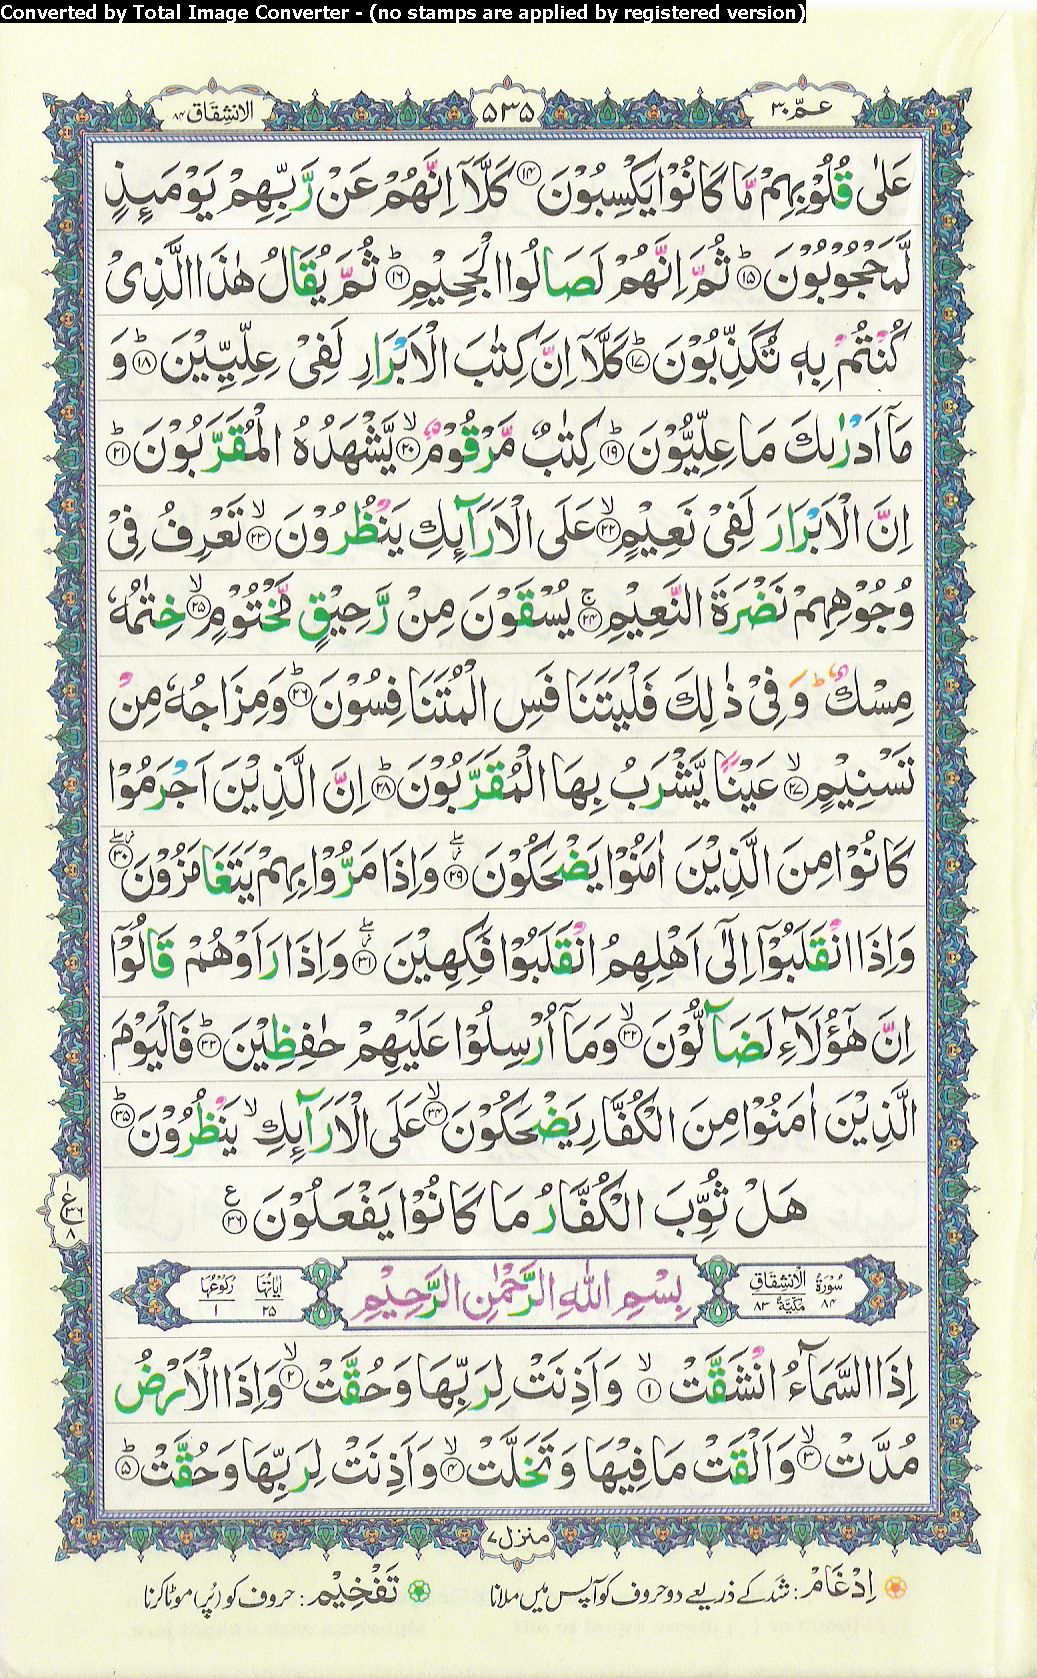 Converted by Total Image Converter - (no stamps are applied by registered version)
عمّ ۳۰
۵۳۵
الانشقاق ۸۴
عَلٰى قُلُوْبِهِمْ مَّا كَانُوْا يَكْسِبُوْنَ ۝۱۴ كَلَّاۤ اِنَّهُمْ عَنْ رَّبِّهِمْ يَوْمَىِٕذٍ
لَّمَحْجُوْبُوْنَ ۝۱۵ؕ ثُمَّ اِنَّهُمْ لَصَالُوا الْجَحِيْمِ ۝۱۶ؕ ثُمَّ يُقَالُ هٰذَا الَّذِىْ
كُنْتُمْ بِهٖ تُكَذِّبُوْنَ ۝۱۷ؕ كَلَّاۤ اِنَّ كِتٰبَ الْاَبْرَارِ لَفِىْ عِلِّيِّيْنَ ۝۱۸ؕ وَ
مَاۤ اَدْرٰىكَ مَا عِلِّيُّوْنَ ۝۱۹ؕ كِتٰبٌ مَّرْقُوْمٌ ۝۲۰ۙ يَّشْهَدُهُ الْمُقَرَّبُوْنَ ۝۲۱ؕ
اِنَّ الْاَبْرَارَ لَفِىْ نَعِيْمٍ ۝۲۲ۙ عَلَى الْاَرَآىِٕكِ يَنْظُرُوْنَ ۝۲۳ۙ تَعْرِفُ فِىْ
وُجُوْهِهِمْ نَضْرَةَ النَّعِيْمِ ۝۲۴ۚ يُسْقَوْنَ مِنْ رَّحِيْقٍ مَّخْتُوْمٍ ۝۲۵ۙ خِتٰمُهٗ
مِسْكٌ ؕ وَ فِىْ ذٰلِكَ فَلْيَتَنَافَسِ الْمُتَنَافِسُوْنَ ۝۲۶ؕ وَمِزَاجُهٗ مِنْ
تَسْنِيْمٍ ۝۲۷ۙ عَيْنًا يَّشْرَبُ بِهَا الْمُقَرَّبُوْنَ ۝۲۸ؕ اِنَّ الَّذِيْنَ اَجْرَمُوْا
كَانُوْا مِنَ الَّذِيْنَ اٰمَنُوْا يَضْحَكُوْنَ ۝۲۹ وَاِذَا مَرُّوْا بِهِمْ يَتَغَامَزُوْنَ ۝۳۰
وَاِذَا انْقَلَبُوْۤا اِلٰٓى اَهْلِهِمُ انْقَلَبُوْا فَكِهِيْنَ ۝۳۱ وَاِذَا رَاَوْهُمْ قَالُوْۤا
اِنَّ هٰۤؤُلَآءِ لَضَآلُّوْنَ ۝۳۲ۙ وَمَاۤ اُرْسِلُوْا عَلَيْهِمْ حٰفِظِيْنَ ۝۳۳ؕ فَالْيَوْمَ
الَّذِيْنَ اٰمَنُوْا مِنَ الْكُفَّارِ يَضْحَكُوْنَ ۝۳۴ۙ عَلَى الْاَرَآىِٕكِ ۙ يَنْظُرُوْنَ ۝۳۵ؕ
هَلْ ثُوِّبَ الْكُفَّارُ مَا كَانُوْا يَفْعَلُوْنَ ۝۳۶ ع
ع ۳۶ ۸
سُوْرَةُ الْاِنْشِقَاقِ مَكِّيَّةٌ ۸۴ ۸۳
بِسْمِ اللّٰهِ الرَّحْمٰنِ الرَّحِيْمِ
اٰيَاتُهَا ۲۵ رُكُوْعُهَا ۱
اِذَا السَّمَآءُ انْشَقَّتْ ۝۱ۙ وَاَذِنَتْ لِرَبِّهَا وَحُقَّتْ ۝۲ۙ وَاِذَا الْاَرْضُ
مُدَّتْ ۝۳ۙ وَاَلْقَتْ مَا فِيْهَا وَتَخَلَّتْ ۝۴ۙ وَاَذِنَتْ لِرَبِّهَا وَحُقَّتْ ۝۵ؕ
منزل ۷
اِدْغَام: شد کے ذریعے دو حروف کو آپس میں ملانا تَفْخِیْم: حروف کو (پُر) موٹا کرنا